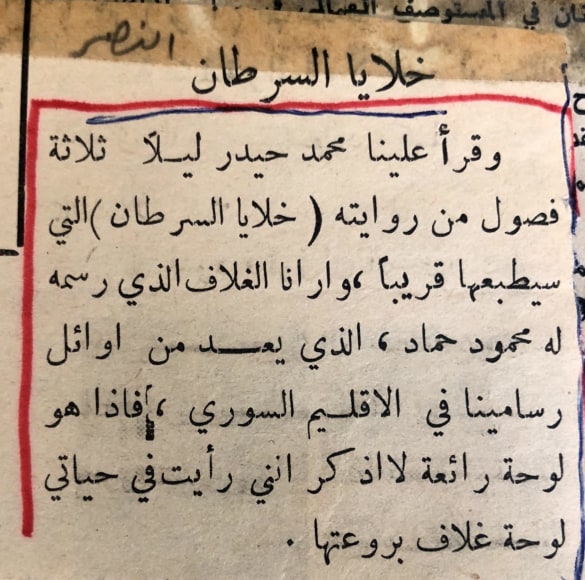 ـان في المستوصف العمالي في
النصر
خلايا السرطان
وقرأ علينا محمد حيدر ليـلًا ثلاثة
فصول من روايته ( خلايا السرطان )التي
سيطبعها قريباً ،وارانا الغلاف الذي رسمه
له محمود حماد ، الذي يعـــد من اوائل
رسامينا في الاقلـيم السوري ، فاذا هو
لوحة رائعة لااذكر انني رأيت في حياتي
لوحة غلاف بروعتها .